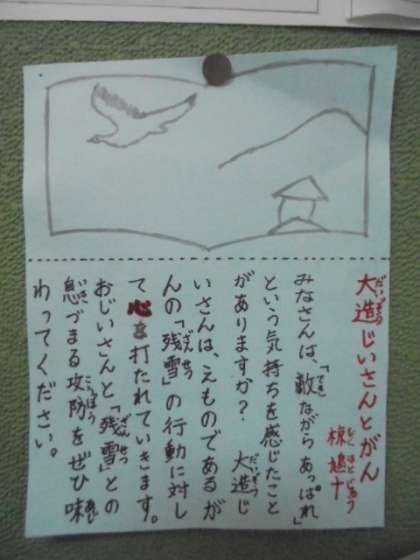 大造じいさんとがん
椋鳩十
みなさんは、「敵ながらあっぱれ」
という気持ちを感じたこと
がありますか？　大造じ
いさんは、えものであるが
んの「残雪」の行動に対し
て心を打たれていきます。
おじいさんと「残雪」との
息づまる攻防をぜひ味
わってください。